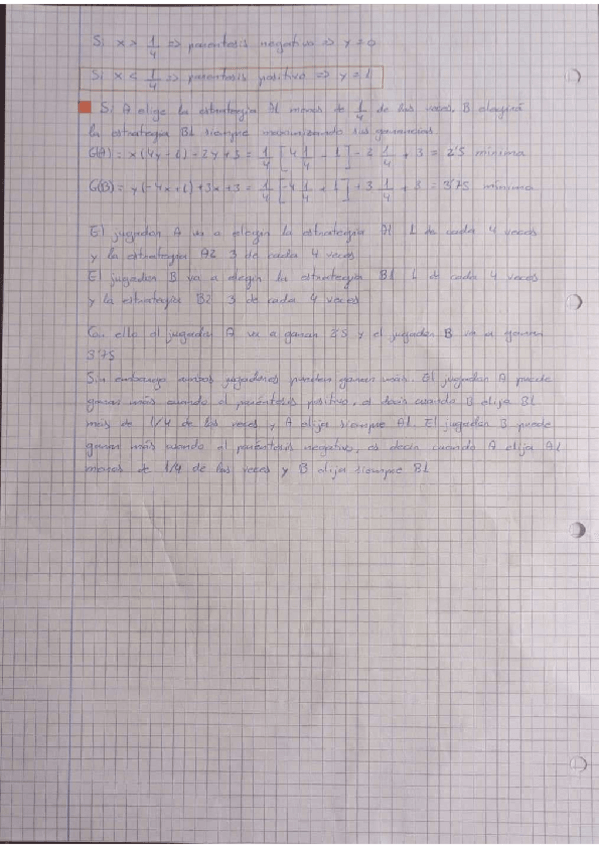 Si x > 1/4 => paréntesis negativo => y = 0
Si x < 1/4 => paréntesis positivo => y = 1
Si A elige la estrategia A1 menos de 1/4 de las veces, B elegirá
la estrategia B1 siempre maximizando sus ganancias
G(A) = x(4y - 1) - 2y + 3 = 1/4 [4 1/4 - 1] - 2 1/4 + 3 = 2'5 mínima
G(B) = y(-4x + 1) + 3x + 3 = 1/4 [-4 1/4 + 1] + 3 1/4 + 3 = 3'75 mínima
El jugador A va a elegir la estrategia A1 1 de cada 4 veces
y la estrategia A2 3 de cada 4 veces
El jugador B va a elegir la estrategia B1 1 de cada 4 veces
y la estrategia B2 3 de cada 4 veces
Con ello el jugador A va a ganar 2'5 y el jugador B va a ganar
3'75
Sin embargo ambos jugadores pueden ganar más. El jugador A puede
ganar más cuando el paréntesis positivo, es decir cuando B elija B1
más de 1/4 de las veces y A elija siempre A1. El jugador B puede
ganar más cuando el paréntesis negativo, es decir cuando A elija A1
menos de 1/4 de las veces y B elija siempre B1